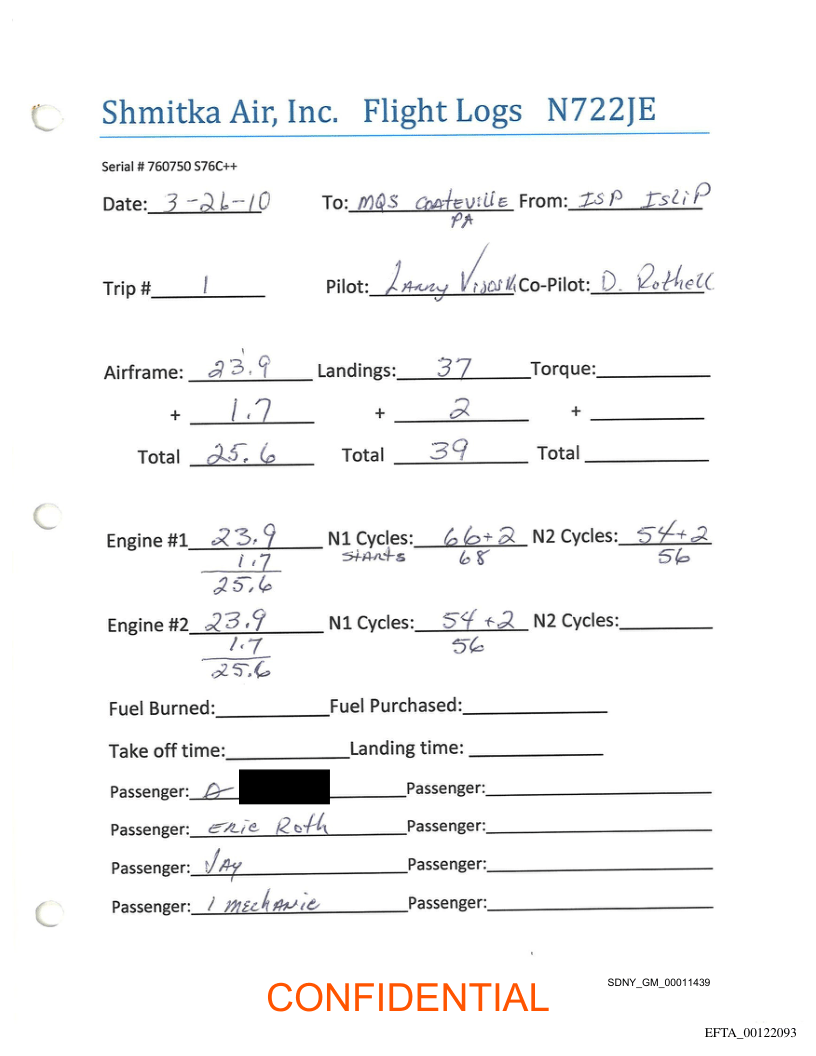 Shmitka Air, Inc. Flight Logs N722JE
Serial # 760750 S76C++
Date: 3-26-10 To: MQS COATEVILLE From: ISP ISLIP
PA
Trip # 1 Pilot: LARRY VISOSKI Co-Pilot: D. Rothell
Airframe: 23.9 Landings: 37 Torque:
+ 1.7 + 2 +
Total 25.6 Total 39 Total
Engine #1 23.9 N1 Cycles: 66+2 N2 Cycles: 54+2
1.7 STARTS 68 56
25.6
Engine #2 23.9 N1 Cycles: 54+2 N2 Cycles:
1.7 56
25.6
Fuel Burned: Fuel Purchased:
Take off time: Landing time:
Passenger: Passenger:
Passenger: ERIC Roth Passenger:
Passenger: JAY Passenger:
Passenger: 1 MECHANIC Passenger:
CONFIDENTIAL
SDNY_GM_00011439
EFTA_00122093